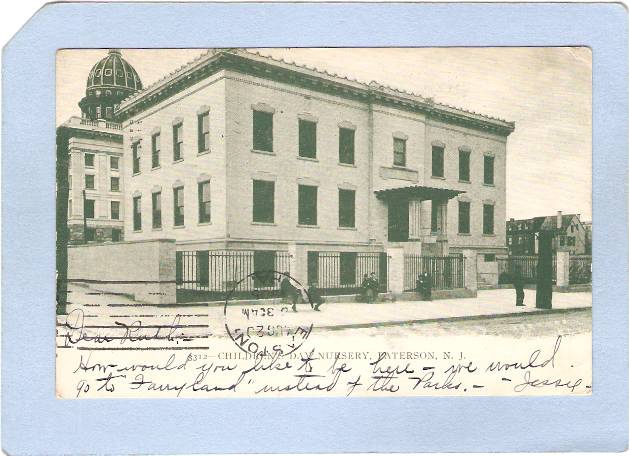 Dear Ruth:-
EASTON
AUG 2
3312—CHILDREN'S DAY NURSERY, PATERSON, N. J.
How would you like to be here - we would
go to "Fairyland" instead of the Parks. - - Jessie -